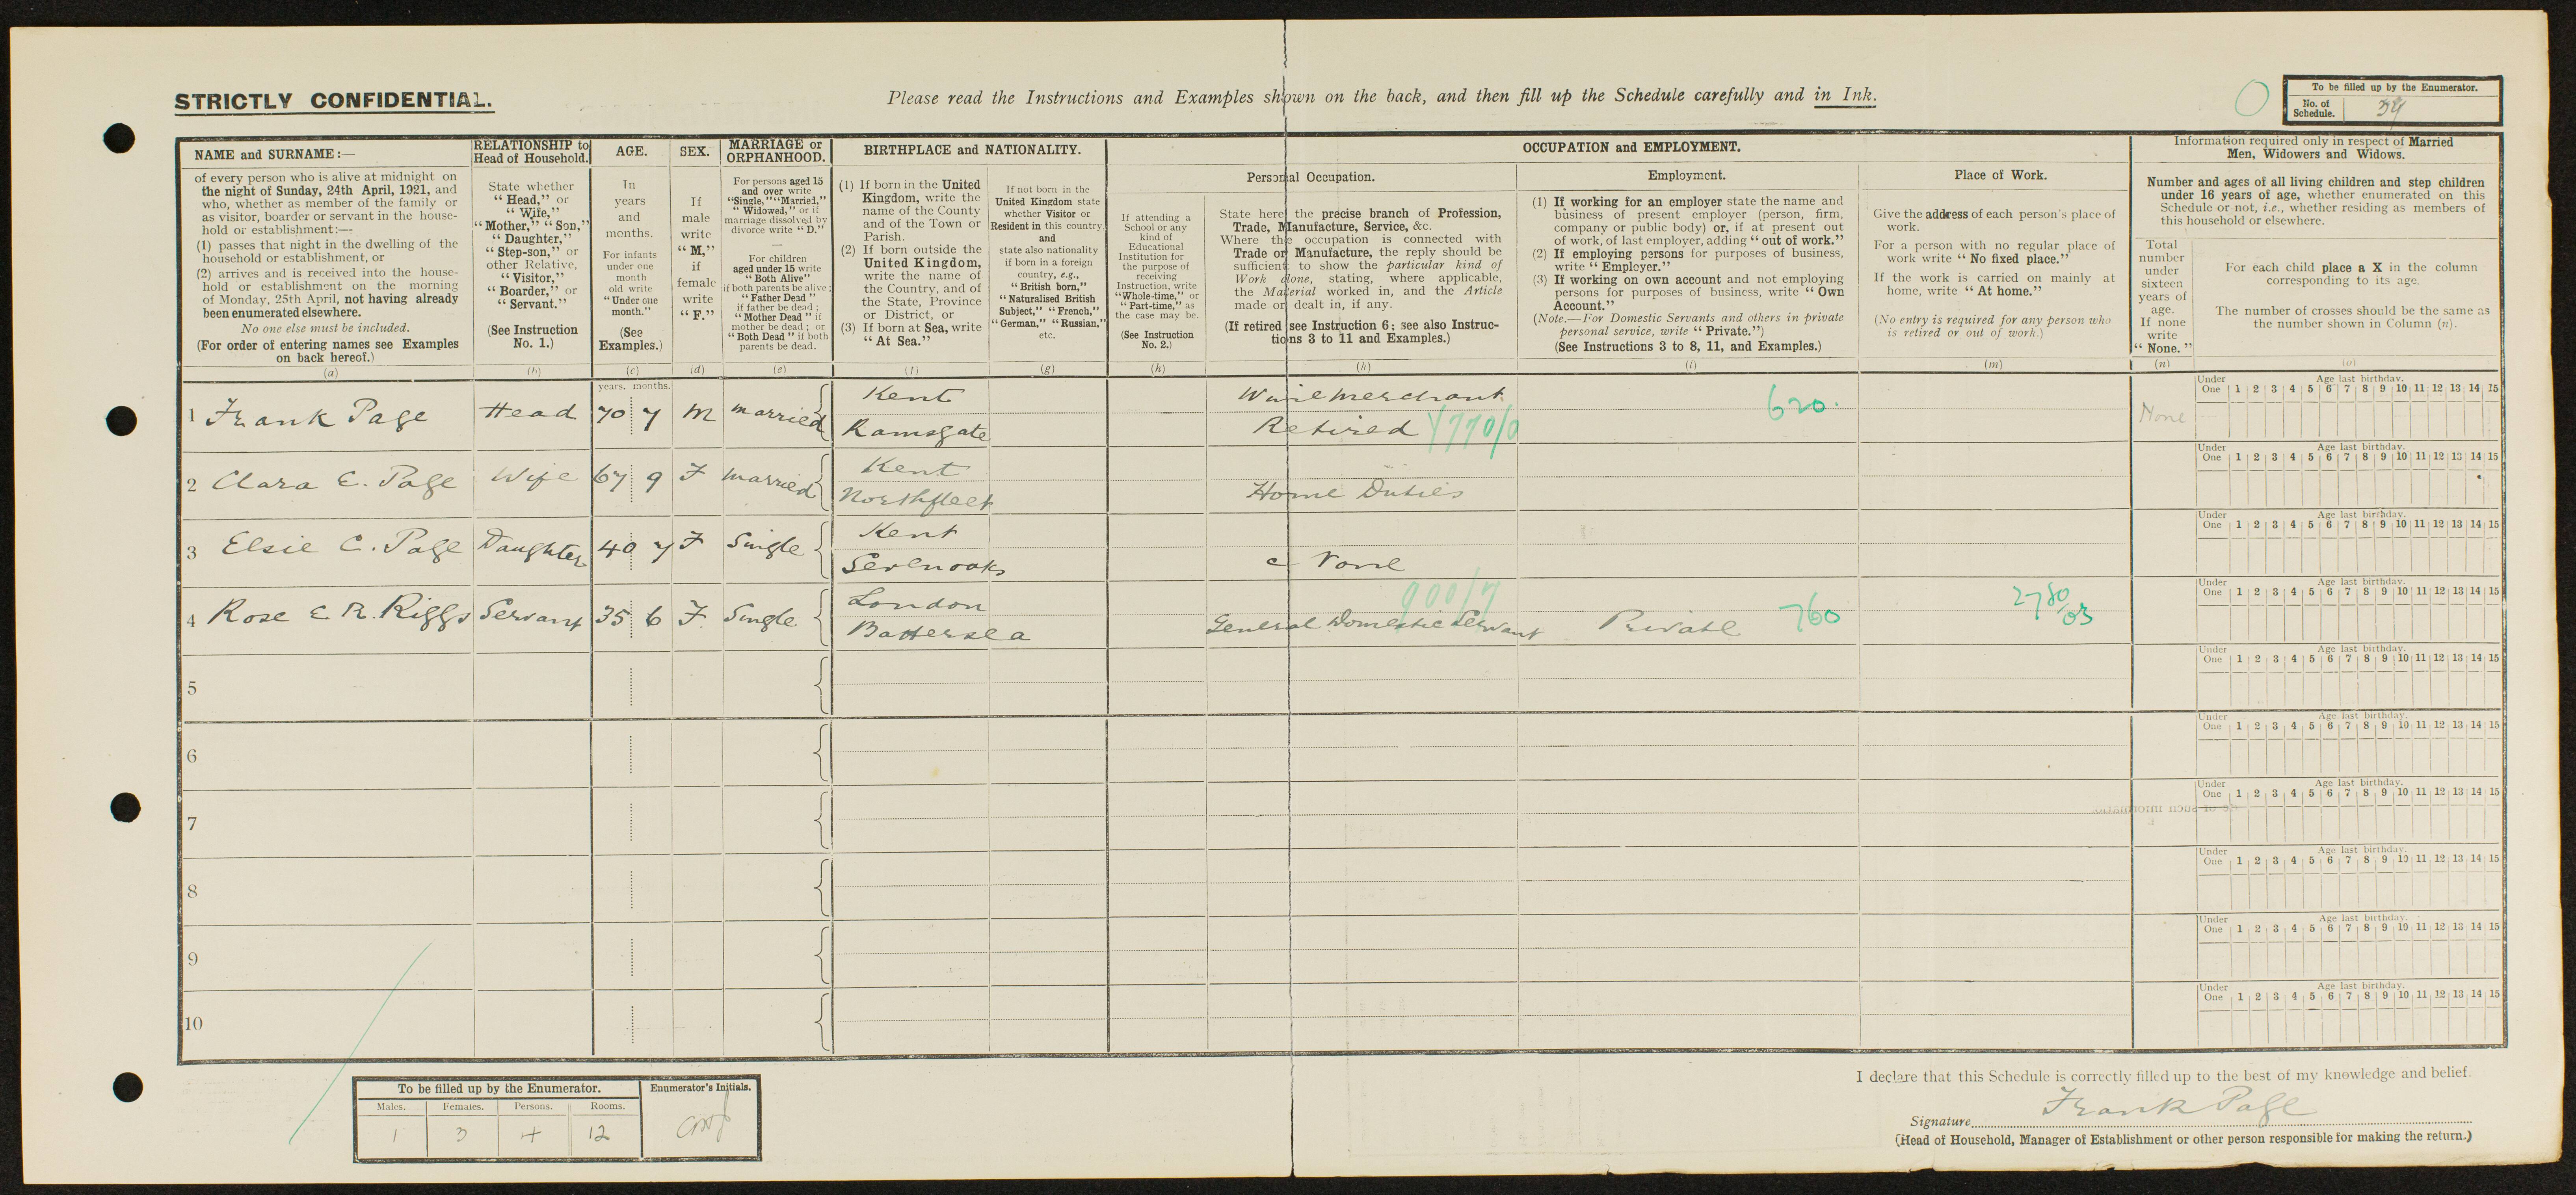 STRICTLY CONFIDENTIAL.
Please read the Instructions and Examples shown on the back, and then fill up the Schedule carefully and in Ink.
To be filled up by the Enumerator.
No. of Schedule.
NAME and SURNAME:—
of every person who is alive at midnight on
the night of Sunday, 24th April, 1921, and
who, whether as member of the family or
as visitor, boarder or servant in the house-
hold or establishment:—
(1) passes that night in the dwelling of the
household or establishment, or
(2) arrives and is received into the house-
hold or establishment on the morning
of Monday, 25th April, not having already
been enumerated elsewhere.
No one else must be included.
(For order of entering names see Examples
on back hereof.)
(a)
RELATIONSHIP to
Head of Household.
State whether
“Head,” or
“Wife,”
“Mother,” “Son,”
“Daughter,”
“Step-son,” or
other Relative,
“Visitor,”
“Boarder,” or
“Servant.”
(See Instruction
No. 1.)
(b)
AGE.
In
years
and
months.
For infants
under one
month
old write
“Under one
month.”
(See
Examples.)
(c)
SEX.
If
male
write
“M,”
if
female
write
“F.”
(d)
MARRIAGE or
ORPHANHOOD.
For persons aged 15
and over write
“Single,” “Married,”
“Widowed,” or if
marriage dissolved by
divorce write “D.”
—
For children
aged under 15 write
“Both Alive”
if both parents be alive;
“Father Dead”
if father be dead;
“Mother Dead” if
mother be dead; or
“Both Dead” if both
parents be dead.
(e)
BIRTHPLACE and NATIONALITY.
(1) If born in the United
Kingdom, write the
name of the County
and of the Town or
Parish.
(2) If born outside the
United Kingdom,
write the name of
the Country, and of
the State, Province
or District, or
(3) If born at Sea, write
“At Sea.”
(f)
If not born in the
United Kingdom state
whether Visitor or
Resident in this country,
and
state also nationality
if born in a foreign
country, e.g.,
“British born,”
“Naturalised British
Subject,” “French,”
“German,” “Russian,”
etc.
(g)
OCCUPATION and EMPLOYMENT.
Personal Occupation.
If attending a
School or any
kind of
Educational
Institution for
the purpose of
receiving
Instruction, write
“Whole-time,” or
“Part-time,” as
the case may be.
(See Instruction
No. 2.)
(h)
State here the precise branch of Profession,
Trade, Manufacture, Service, &c.
Where the occupation is connected with
Trade or Manufacture, the reply should be
sufficient to show the particular kind of
Work done, stating, where applicable,
the Material worked in, and the Article
made or dealt in, if any.
(If retired see Instruction 6; see also Instruc-
tions 3 to 11 and Examples.)
(k)
Employment.
(1) If working for an employer state the name and
business of present employer (person, firm,
company or public body) or, if at present out
of work, of last employer, adding “out of work.”
(2) If employing persons for purposes of business,
write “Employer.”
(3) If working on own account and not employing
persons for purposes of business, write “Own
Account.”
(Note.—For Domestic Servants and others in private
personal service, write “Private.”)
(See Instructions 3 to 8, 11, and Examples.)
(l)
Place of Work.
Give the address of each person's place of
work.
For a person with no regular place of
work write “No fixed place.”
If the work is carried on mainly at
home, write “At home.”
(No entry is required for any person who
is retired or out of work.)
(m)
Information required only in respect of Married
Men, Widowers and Widows.
Number and ages of all living children and step children
under 16 years of age, whether enumerated on this
Schedule or not, i.e., whether residing as members of
this household or elsewhere.
Total
number
under
sixteen
years of
age.
If none
write
“None.”
(n)
For each child place a X in the column
corresponding to its age.
The number of crosses should be the same as
the number shown in Column (n).
(o)
years. months.
1 Frank Page Head 70 7 M Married Kent Ramsgate Wine Merchant Retired 620. None
Under One Age last birthday. 1 2 3 4 5 6 7 8 9 10 11 12 13 14 15
2 Clara E. Page Wife 67 9 F Married Kent Northfleet Home Duties
Under One Age last birthday. 1 2 3 4 5 6 7 8 9 10 11 12 13 14 15
3 Elsie C. Page Daughter 40 7 F Single Kent Sevenoaks None
Under One Age last birthday. 1 2 3 4 5 6 7 8 9 10 11 12 13 14 15
4 Rose E. R. Riggs Servant 35 6 F. Single London Battersea 900/7 General Domestic Servant Private 760 2780/03
Under One Age last birthday. 1 2 3 4 5 6 7 8 9 10 11 12 13 14 15
5
Under One Age last birthday. 1 2 3 4 5 6 7 8 9 10 11 12 13 14 15
6
Under One Age last birthday. 1 2 3 4 5 6 7 8 9 10 11 12 13 14 15
7
Under One Age last birthday. 1 2 3 4 5 6 7 8 9 10 11 12 13 14 15
8
Under One Age last birthday. 1 2 3 4 5 6 7 8 9 10 11 12 13 14 15
9
Under One Age last birthday. 1 2 3 4 5 6 7 8 9 10 11 12 13 14 15
10
Under One Age last birthday. 1 2 3 4 5 6 7 8 9 10 11 12 13 14 15
To be filled up by the Enumerator.
Enumerator's Initials.
Males. Females. Persons. Rooms.
1 3 4 12
I declare that this Schedule is correctly filled up to the best of my knowledge and belief.
Signature Frank Page
(Head of Household, Manager of Establishment or other person responsible for making the return.)